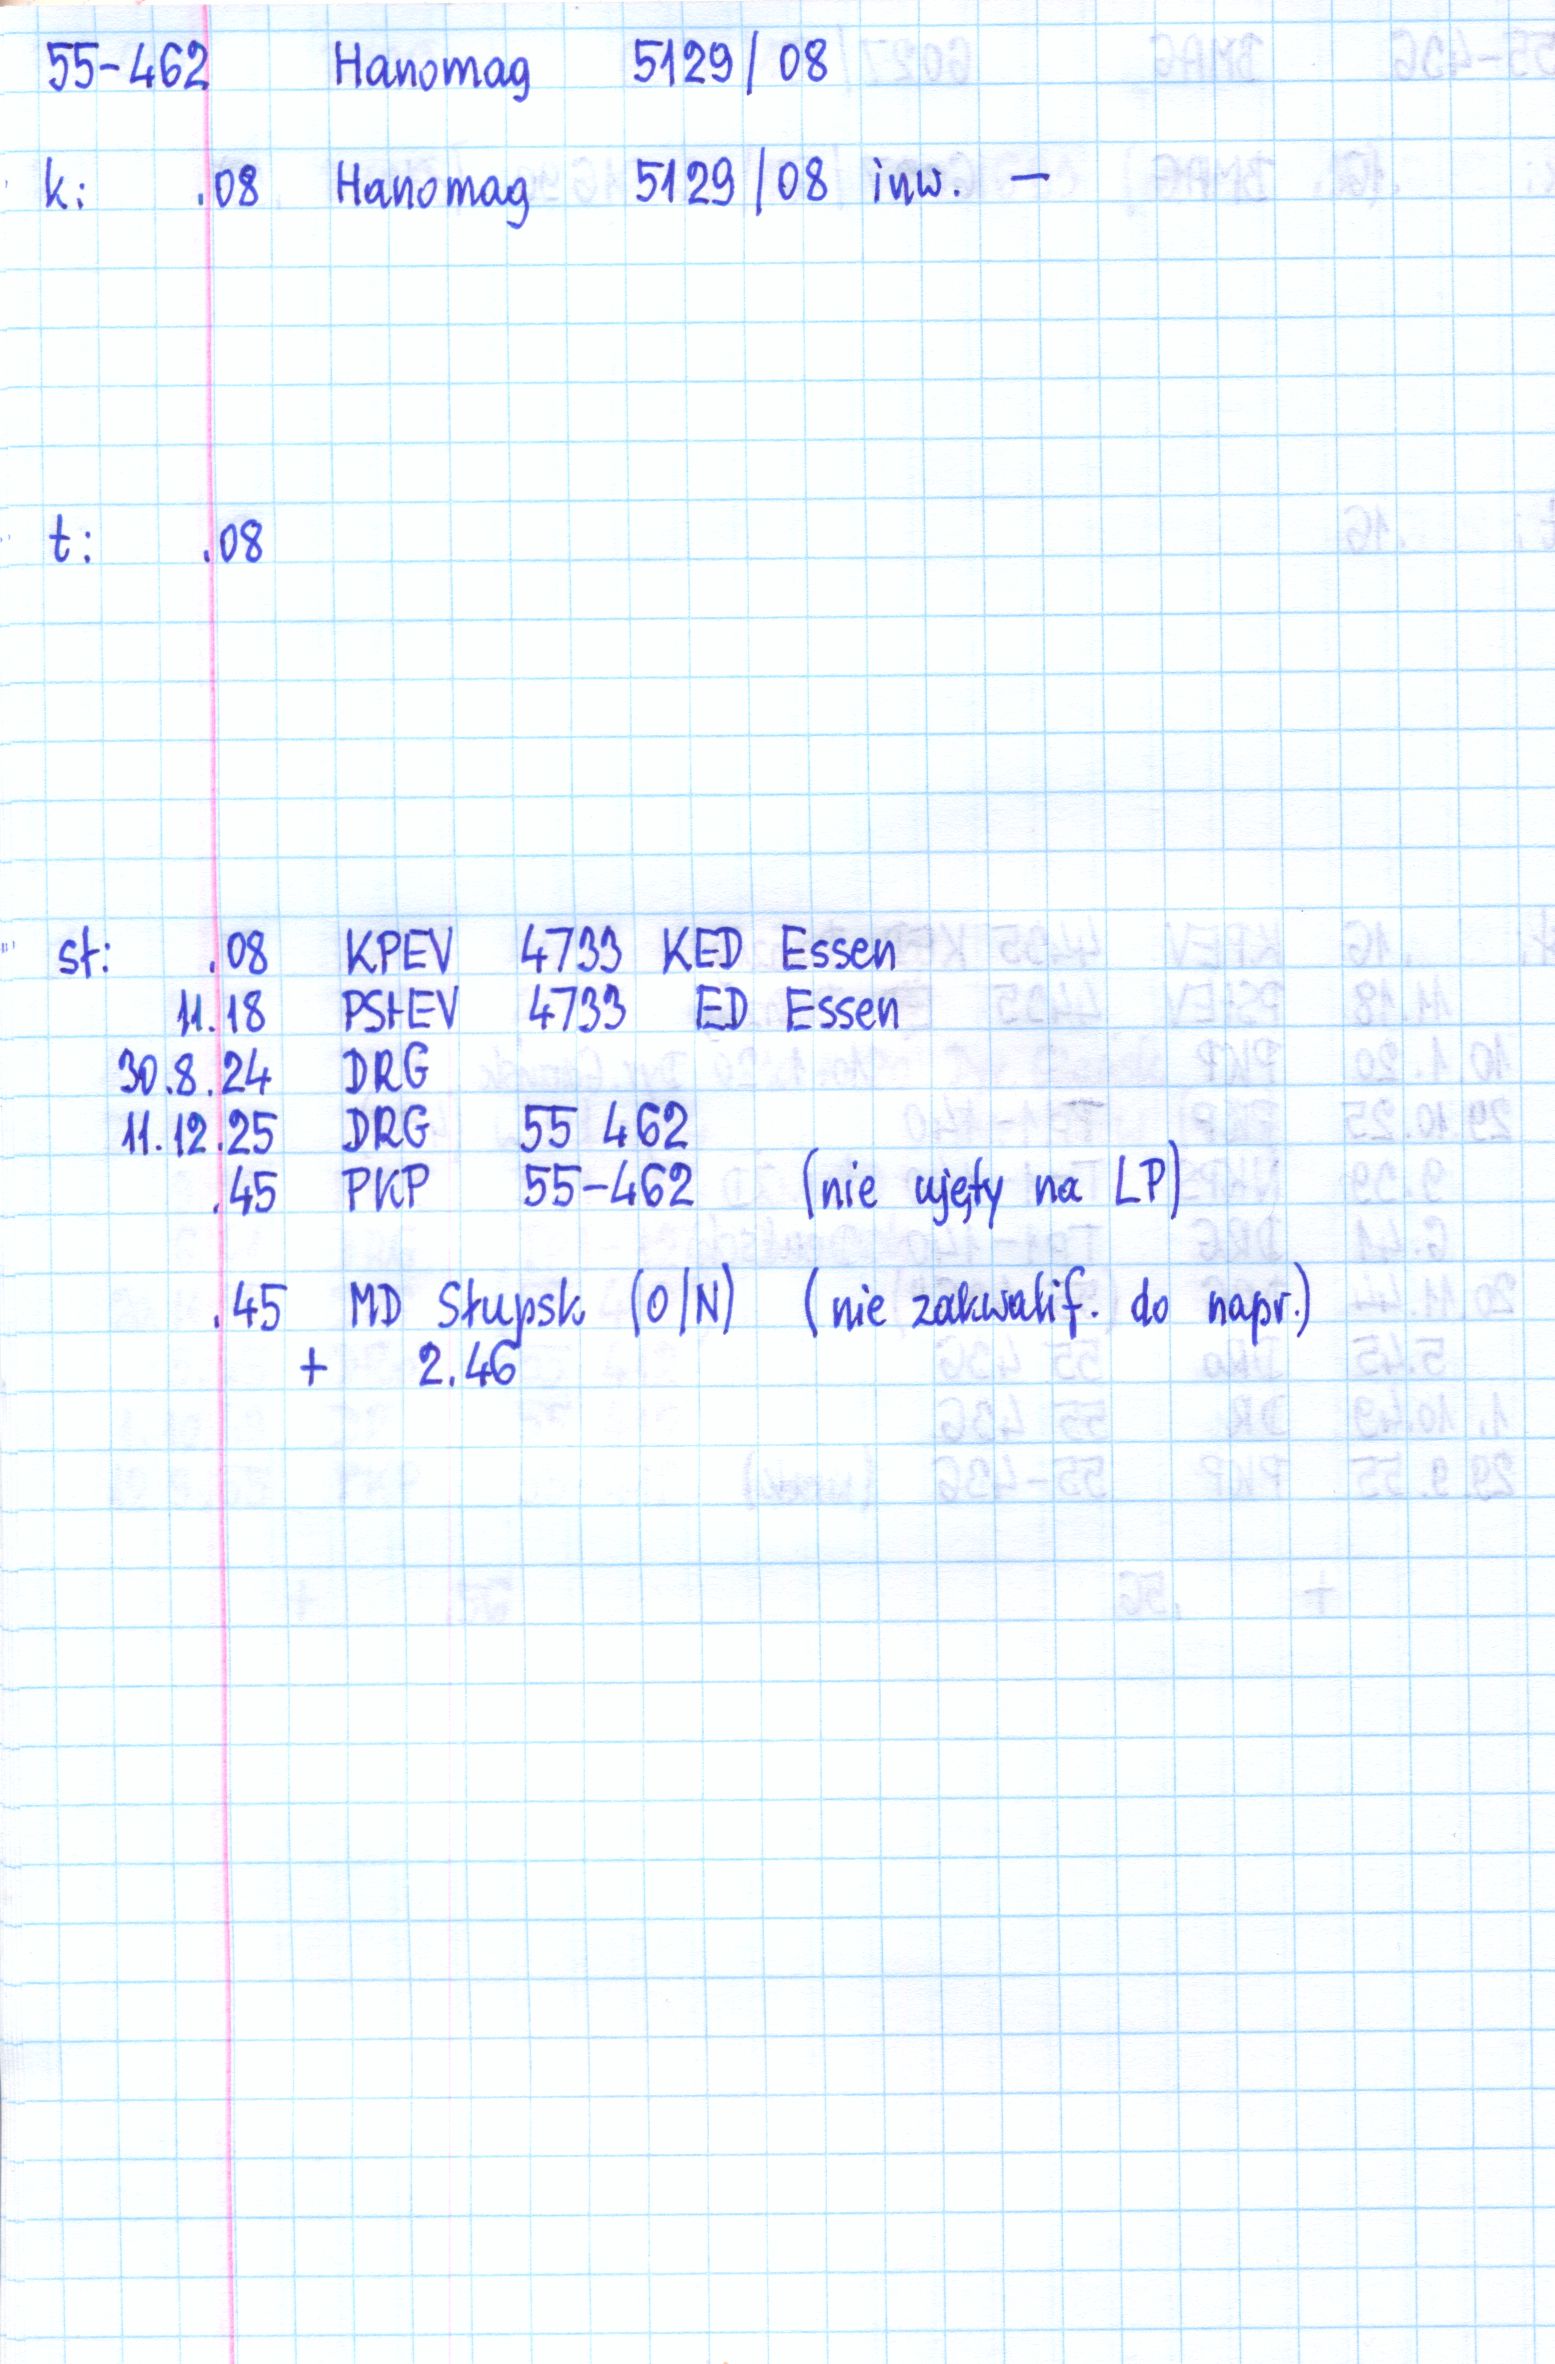 55-462 Hanomag 5129/08
k: .08 Hanomag 5129/08 inw. —
t: .08
st: .08 KPEV 4733 KED Essen
11.18 PStEV 4733 ED Essen
30.8.24 DRG
11.12.25 DRG 55 462
.45 PKP 55-462 (nie ujęty na LP)
.45 MD Słupsk (O/N) (nie zakwalif. do napr.)
+ 2.46